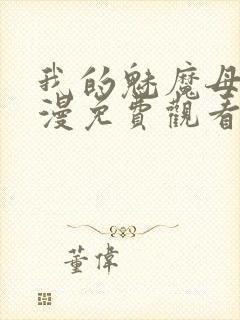 我的魅魔母
漫免費觀看
董偉